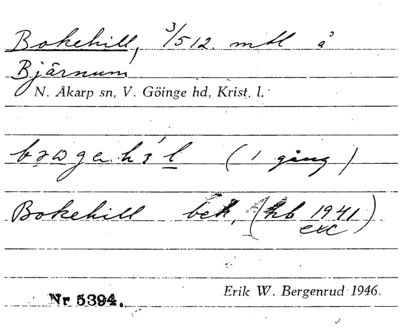 Bokehill, 3/512 mtl å
Bjärnum
N. Åkarp sn, V. Göinge hd, Krist. l.
(1 gång)
Bokehill bek. (hb 1941)
exc
Nr 5394.
Erik W. Bergenrud 1946.